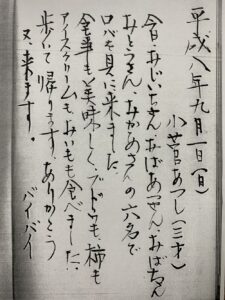 平成八年九月一日(日)
小菅あつし(三才)
今日、おじいちゃん、おばあちゃん、おばちゃん
おとうさん、おかあさんの六名で
ロバを見に来ました。
食事も美味しく、ブドウも、柿も
アイスクリームも、おいもも食べました。
歩いて帰ります。ありがとう
又、来ます。
バイバイ